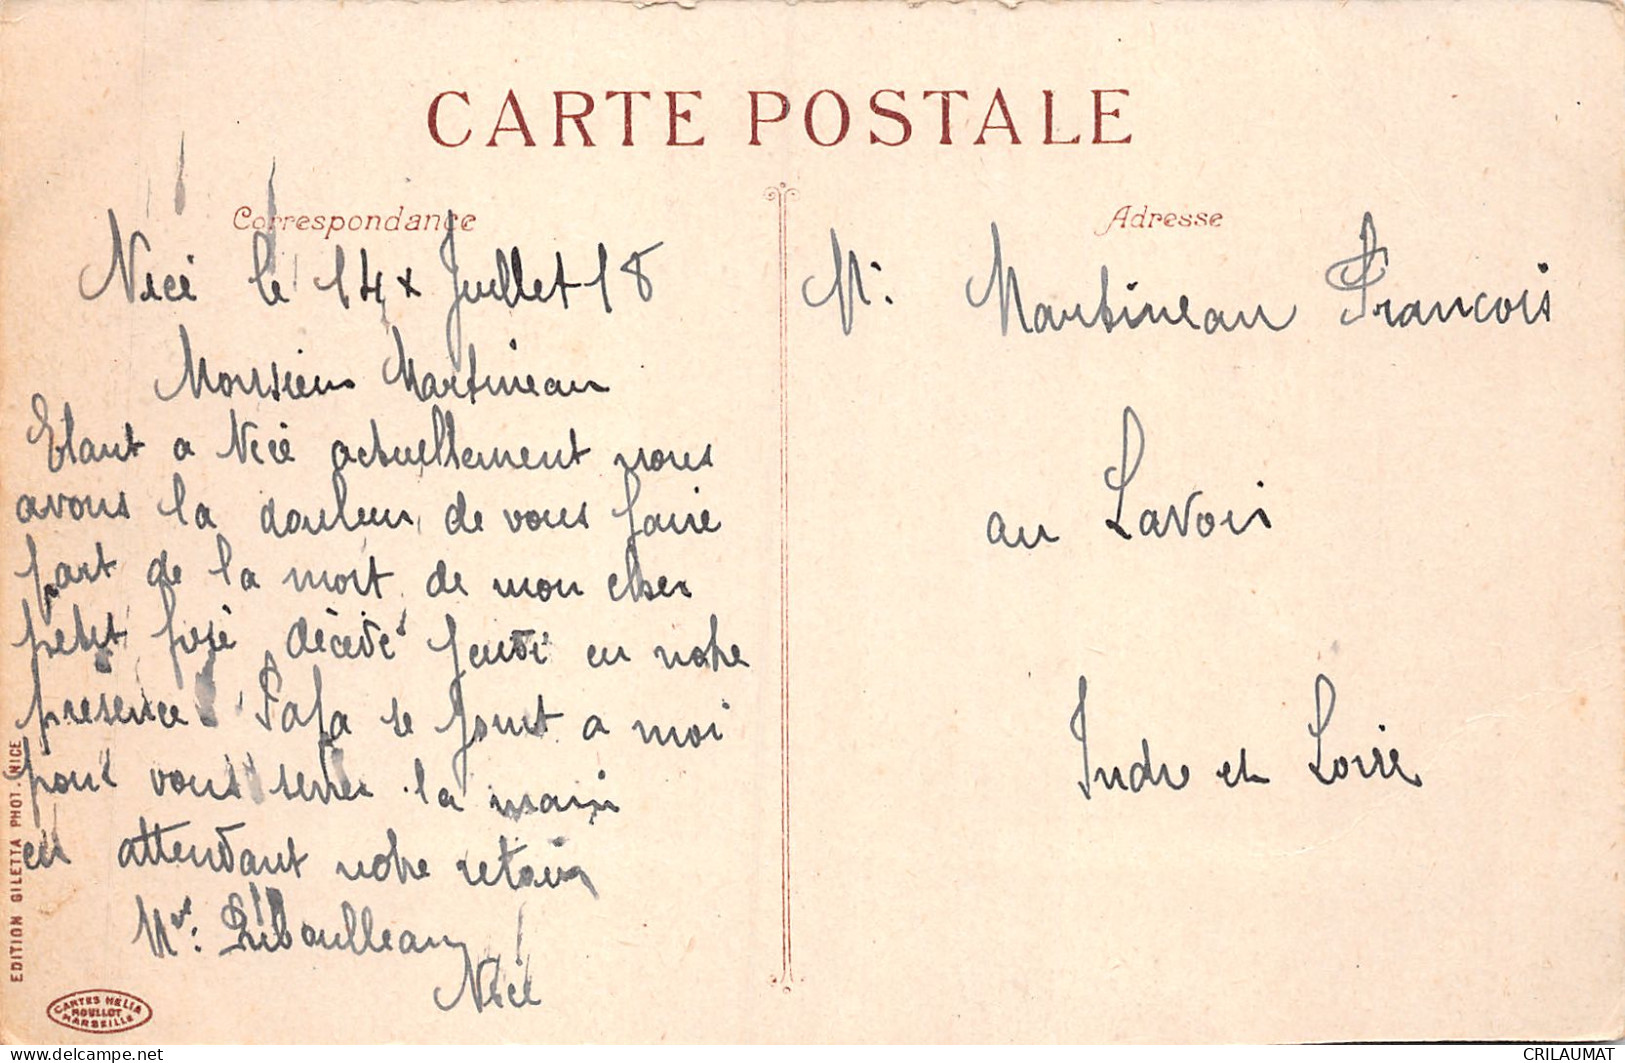 CARTE POSTALE
Correspondance
Nice le 14 x Juillet 18
Monsieur Martineau
Etant a Nice actuellement nous
avons la douleur de vous faire
part de la mort de mon cher
petit frère décédé jeudi en notre
présence Papa se joint a moi
pour vous serrer la main
en attendant notre retour
Ribaulleau
Nice
Adresse
Mr Martineau François
au Lavoir
Indre et Loire
EDITION GILETTA PHOT. NICE
CARTES HELIA
ROULLOT
MARSEILLE
delcampe.net
CRILAUMAT